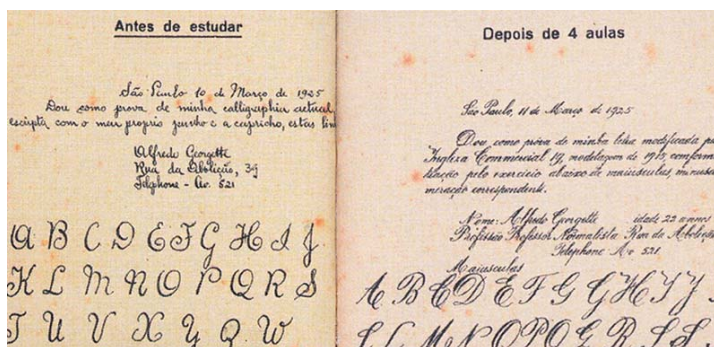 Antes de estudar
São Paulo 10 de Março de 1925
Dou como prova de minha calligraphia actual
escripta com o meu proprio punho e a capricho, estas lin
Alfredo Georgette
Rua da Abolição, 39
Telephone - Av. 521
A B C D E F G H I J
K L M N O P Q R S
T U V X Y Q W
Depois de 4 aulas
São Paulo, 11 de Março de 1925
Dou como prova de minha letra modificada p
Ingleza Commercial 19, modelagem de 1915, conform
pelo exercicio abaixo de maiusculas minuscu
meração correspondente.
Nome: Alfredo Georgette idade 22 annos
Profissão Professor Normalista Rua da Aboliç
Telephone Av 521.
Maiusculas
A B C D E F G G H I J
L L M N O P Q R S S